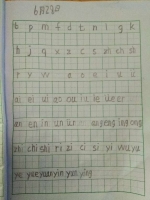 b p m f d t n l g k
h j q x z c s zh ch sh
r y w a o e i u ü
ai ei ui ao ou iu ie üe er
an en in un ün ang eng ing ong
zhi chi shi ri zi ci si yi wu yu
ye yue yuan yin yun ying